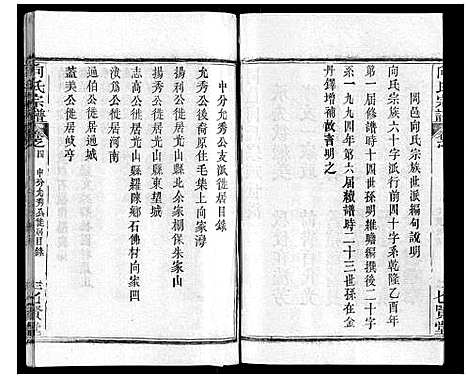 向氏宗譜
七賢堂
岡邑向氏宗族世派編句說明
向氏宗族六十字派行前四十字系乾隆乙酉年
第一屆修譜時十四世孫明維瞻編撰後二十字
系一九九四年第六屆續譜時二十三世孫在金
丹鐸增補故言明之
中分允秀公支派徙居目錄
允秀公後裔原住毛集上向家灣
揚利公徙居光山縣北余家棚保朱家山
揚
公徙居光山縣東望城
志高公徙居光山縣羅陳鄉石佛村向家凹
濱為公徙居河南
適伯公徙居適城
蓋美公徙居岐亭
向氏宗譜
卷之四
中分允秀公徙居目錄
三
七賢堂